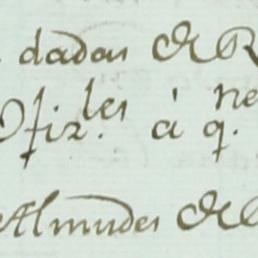 dadas de R
Ofiz.les á q. ne
Almudes de